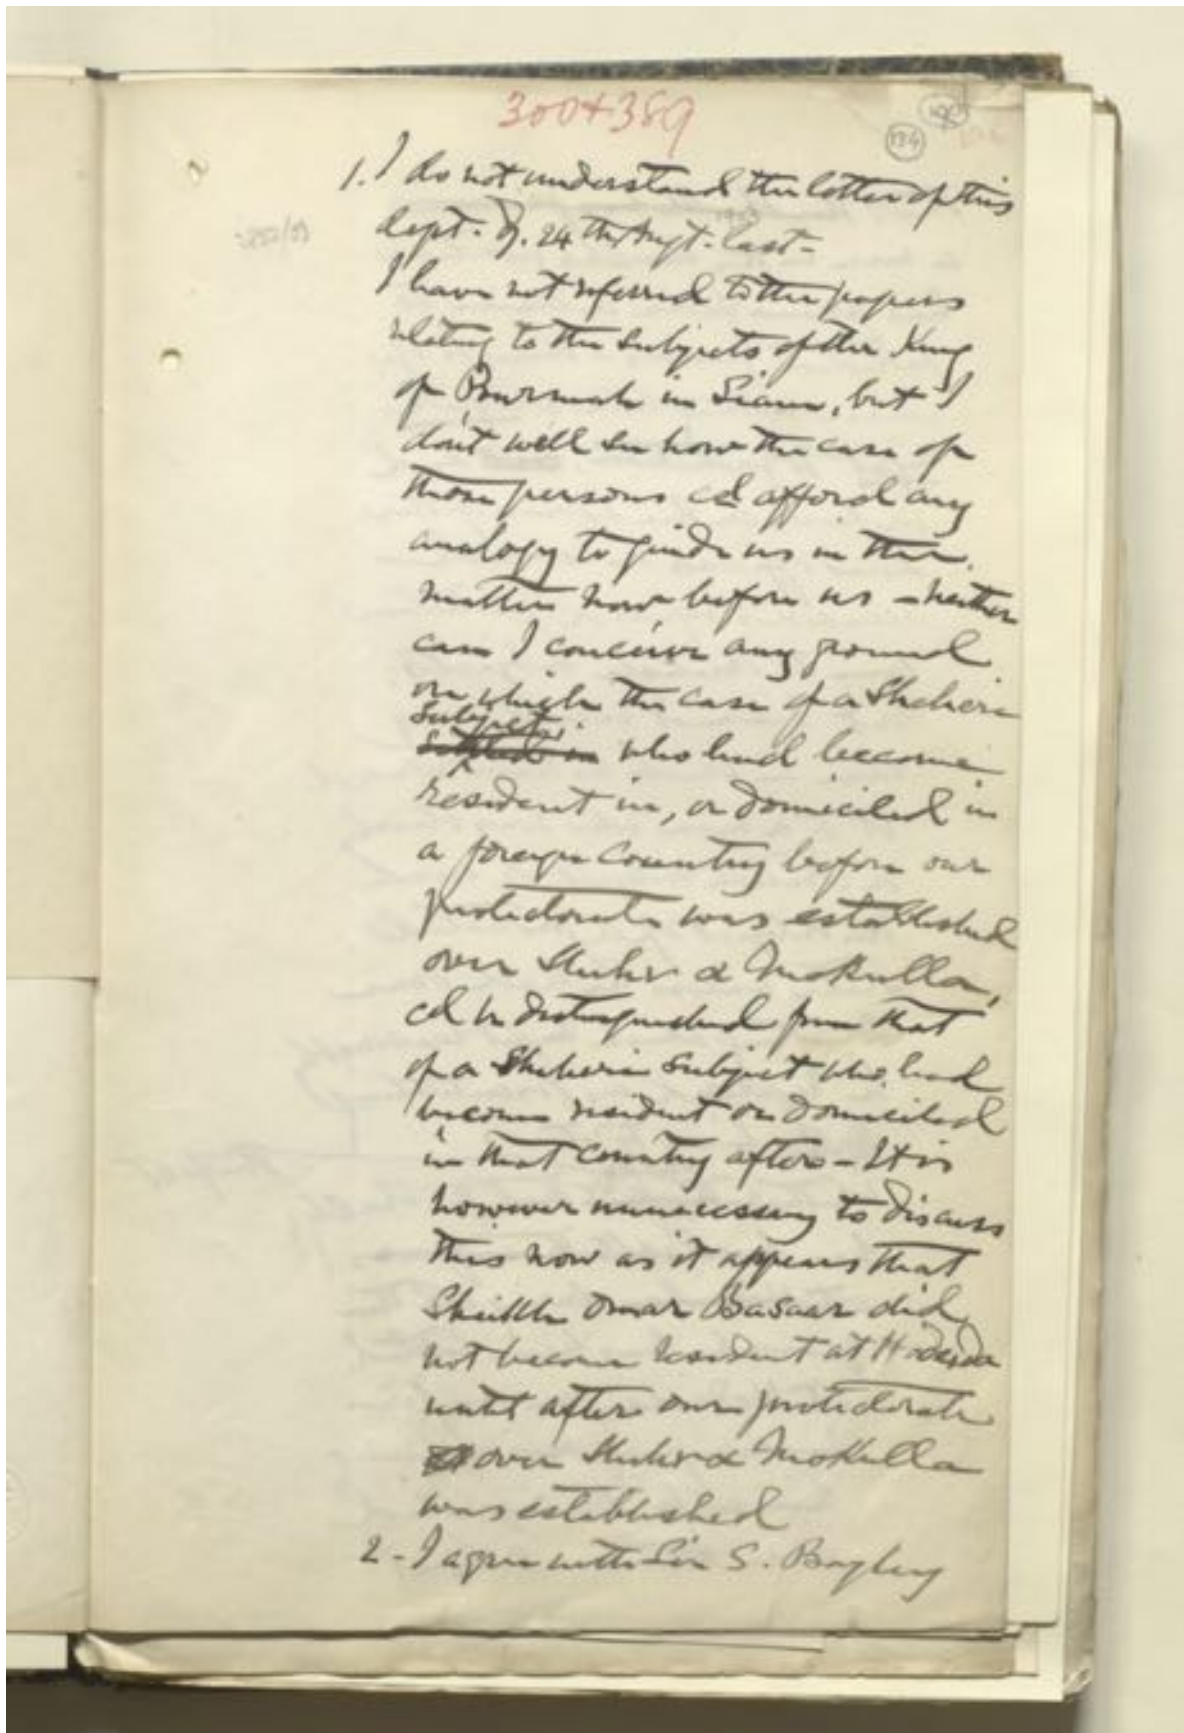 300+389
134
1. I do not understand the letter of this
dept. of. 24th Augt. last -
I have not referred to the papers
relating to the subjects of the King
of Burmah in Siam, but I
don't well see how the case of
those persons cd afford any
analogy to guide us in the
matter now before us - neither
can I conceive any ground
on which the case of a Sheheri
subject
who had become
resident in, or domiciled in
a foreign country before our
protectorate was established
over Shehr & Mokulla,
cd be distinguished from that
of a Sheheri subject who had
become resident or domiciled
in that country after - It is
however unnecessary to discuss
this now as it appears that
Sheikh Omar Basaar did
not become resident at Hodeida
until after our protectorate
over Shehr & Mokulla
was established
2 - I agree with Sir S. Bayley